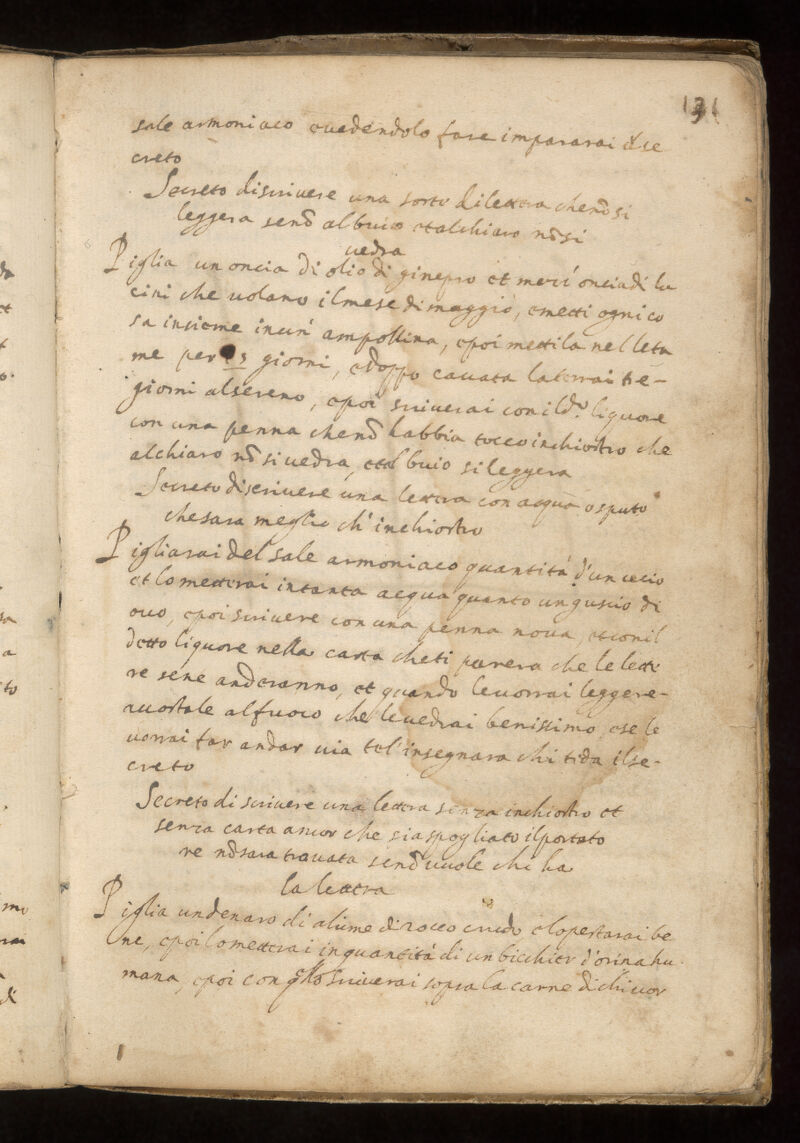 131
sale armoniaco e vedendolo fare impararai il se
creto
Secreto di scrivere una sorte di lettera che nõ si
leggera senõ al buio et al chiaro nõ si
vedra
Piglia un oncia di olio di ginepro et mezz' oncia di lu
cini che volano il mese di maggio, e metti ogni co
sa insieme in un' ampollina, e poi mettila nel leta
me per giorni, e doppo cavata laterrai tre-
giorni al sereno, e poi scriverai con il dº. liquore
con una penna che nõ habbia tocco inchiostro che
al chiaro nõ si vedra, et al buio si leggera
Secreto di scrivere una lettera con acqua o sputo
che sara meglio ch' inchiostro
Pigliarai del sale armoniaco quantitá d'un cecio
et lo metterai in tanta acqua quanto un guscio di
ovo, e poi scrivere con una penna nova, et con il
detto liquore nella carta che ti parera che le lette
re sene anderanno, et quando le vorrai leggere-
accostale al fuoco che le vedrai benissimo, e se le
vorrai far andar via tel' insegnara chi ti da il se-
creto
Secreto di scrivere una lettera senza inchiostro et
senza carta ancor che sia spogliato il portato
re nõ sara trovata senõ vuole chi ha
la lettera
Piglia un denaro di alume di rocco crudo e lo pestarai be
ne, e poi lo metterai in quantitá di un bicchier d'orina hu-
mana, e poi con qsto scriverai sopra la carne di chi vor